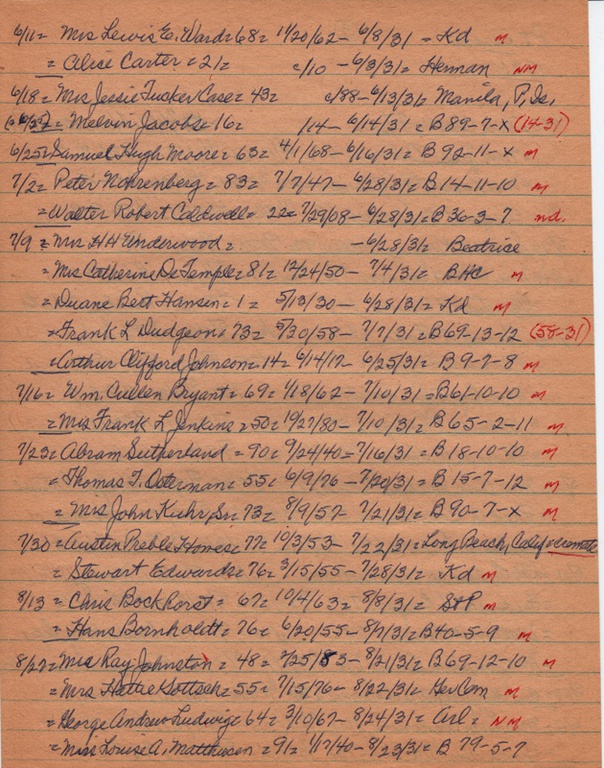 6/11 = Mrs Lewis E. Ward = 68 = 11/20/62 - 6/8/31 = Kd M
= Alise Carter = 21 = c/10 - 6/3/31 = Herman NM
6/18 = Mrs Jessie Tucker Case = 43 = c/88 - 6/13/31 = Manila, P. Is.
= Melvin Jacobs = 16 = /14 - 6/14/31 = B 89-7-X (14-31)
6/25 = Samuel Hugh Moore = 63 = 4/1/68 - 6/16/31 = B 92-11-X M
7/2 = Peter Nohrenberg = 83 = 7/7/47 - 6/28/31 = B 14-11-10 M
= Walter Robert Caldwell = 22 = 7/29/08 - 6/28/31 = B 36-3-7 nd.
7/9 = Mrs H H Underwood = - 6/28/31 = Beatrice
= Mrs Catherine De Temple = 81 = 12/24/50 - 7/4/31 = BHC M
= Duane Bert Hansen = 1 = 5/13/30 - 6/28/31 = Kd M
= Frank L Dudgeon = 73 = 5/20/58 - 7/7/31 = B 69-13-12 (58-31)
= Arthur Clifford Johnson = 14 = 6/14/17 - 6/25/31 = B 9-7-8 M
7/16 = Wm. Cullen Bryant = 69 = 1/18/62 - 7/10/31 = B 61-10-10 M
= Mrs Frank L Jenkins = 50 = 10/27/80 - 7/10/31 = B 65-2-11 M
7/23 = Abram Sutherland = 90 = 9/24/40 = 7/16/31 = B 18-10-10 M
= Thomas T. Osterman = 55 = 6/9/76 - 7/20/31 = B 15-7-12 M
= Mrs John Kuhr, Sr = 73 = 8/9/57 - 7/21/31 = B 90-7-X M
7/30 = Austin Preble Howes = 77 = 10/3/53 - 7/22/31 = Long Beach, Calif = cremate
= Stewart Edwards = 76 = 3/15/55 - 7/28/31 = Kd M
8/13 = Chris Bockhorst = 67 = 10/4/63 = 8/8/31 = StP M
= Hans Bornholdt = 76 = 6/20/55 - 8/7/31 = B 40-5-9 M
8/27 = Mrs Ray Johnston = 48 = 2/25/83 - 8/21/31 = B 69-12-10 M
= Mrs Hattie Gottsch = 55 = 7/15/76 - 8/22/31 = Ger Cem M
= George Andrew Ludwig = 64 = 3/10/67 - 8/24/31 = Arl = NM
= Miss Louise A. Matthiesen = 91 = 1/17/40 - 8/23/31 = B 79-5-7